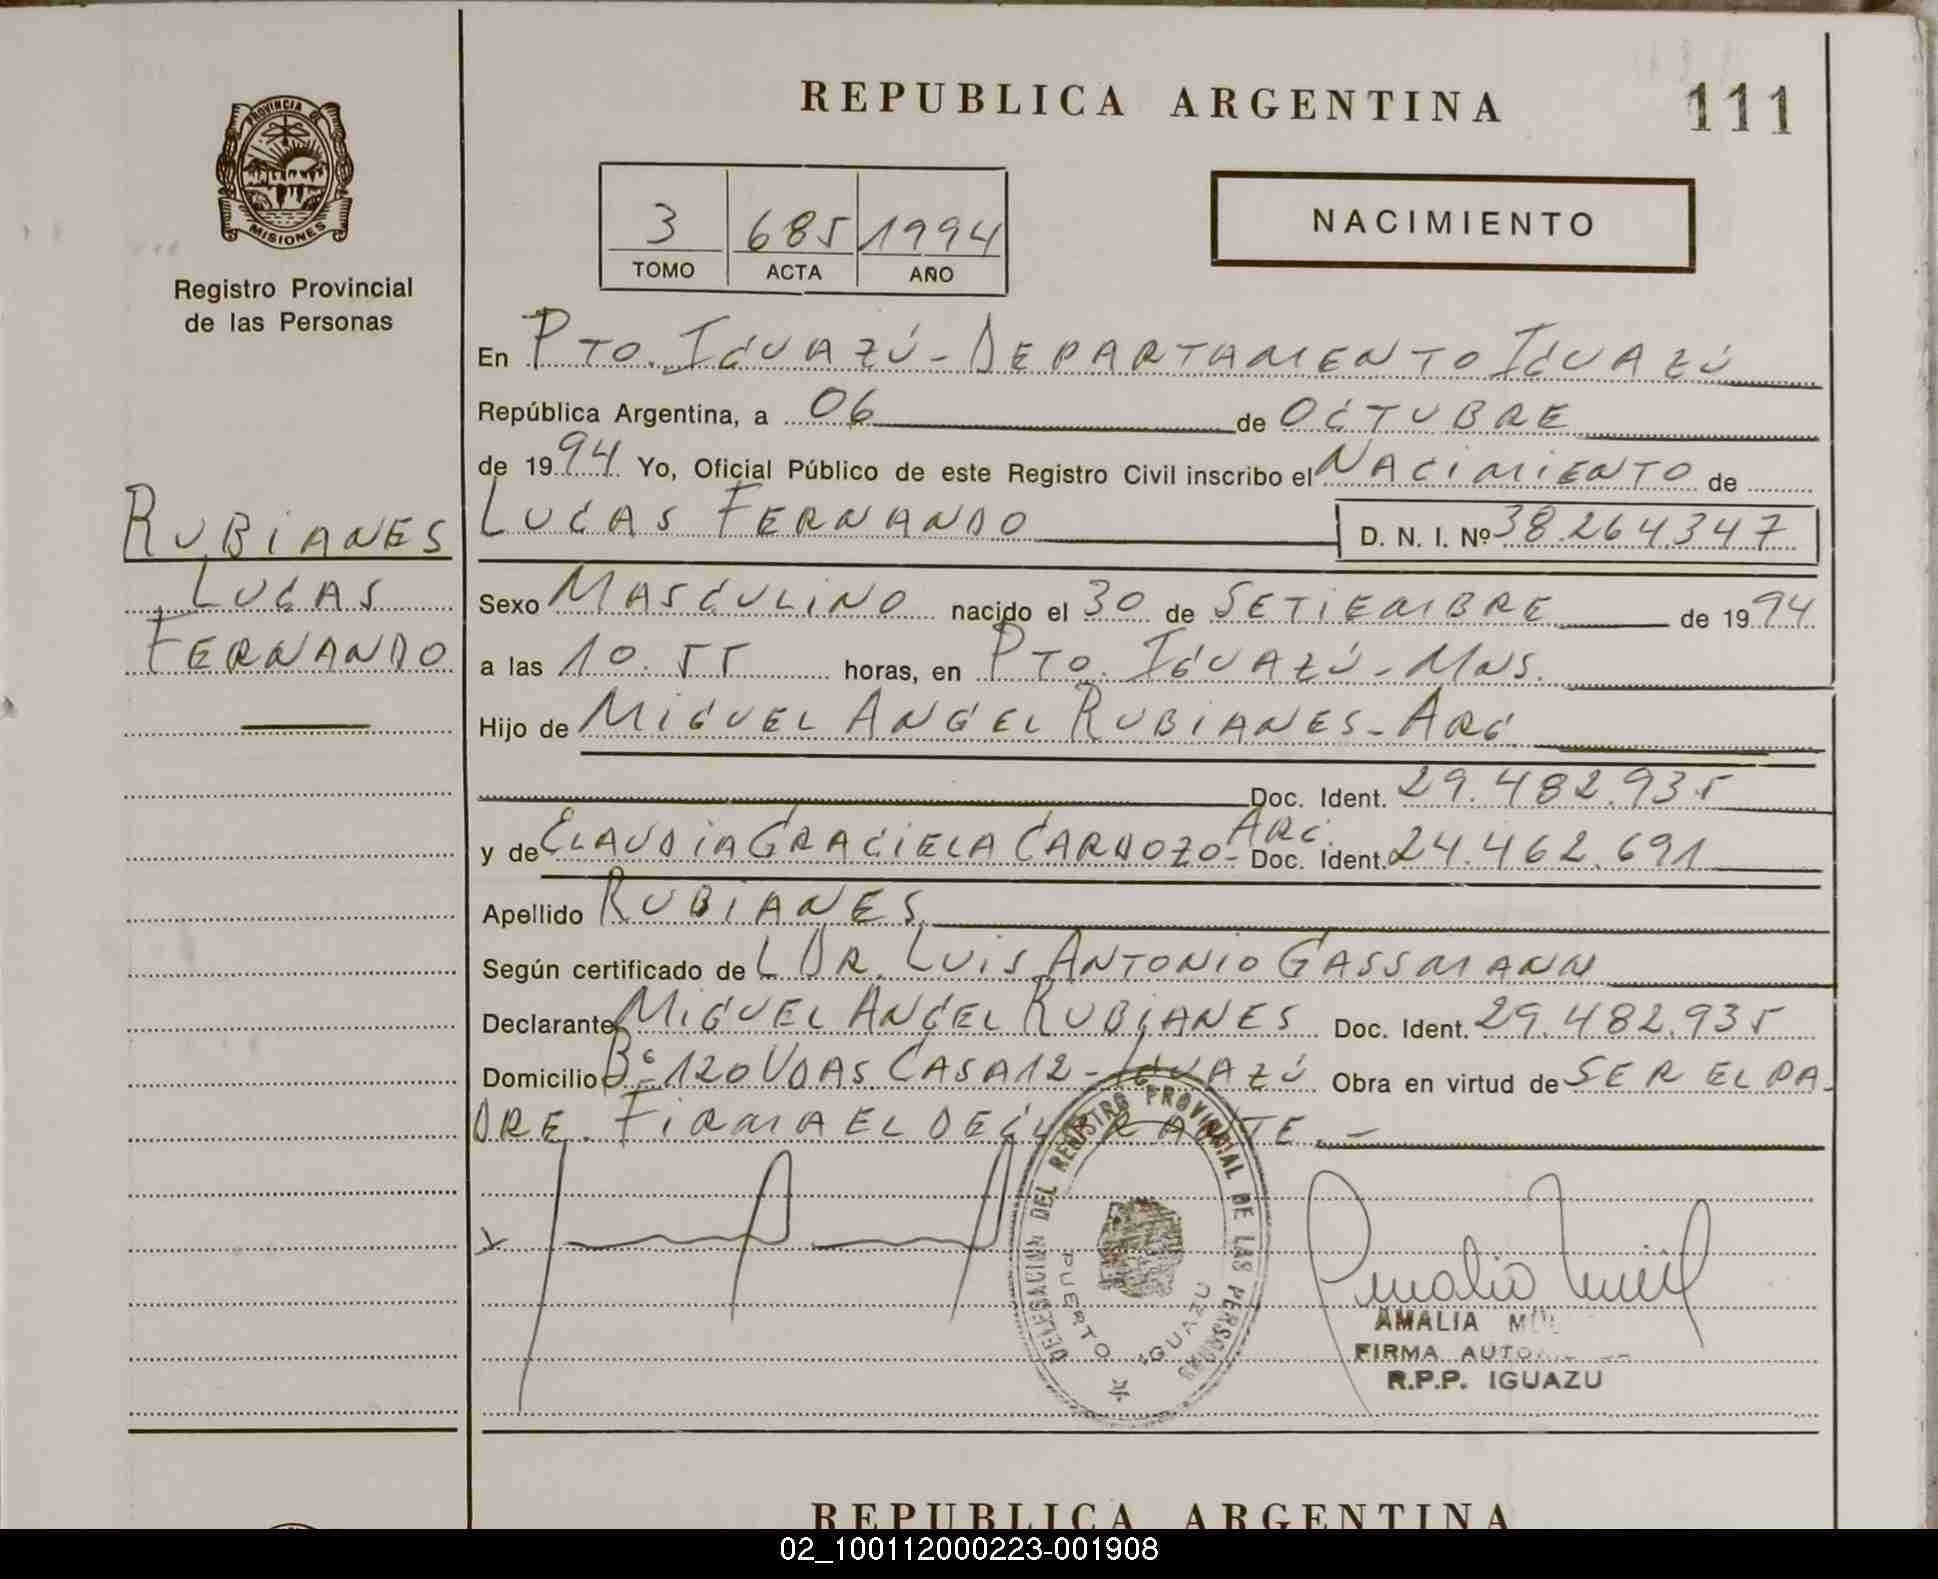 REPUBLICA ARGENTINA
111
PROVINCIA DE
MISIONES
Registro Provincial
de las Personas
3 685 1994
TOMO ACTA AÑO
NACIMIENTO
En PTO. IGUAZÚ - DEPARTAMENTO IGUAZÚ
República Argentina, a 06 de OCTUBRE
de 1994 Yo, Oficial Público de este Registro Civil inscribo el NACIMIENTO de
LUCAS FERNANDO D. N. I. Nº 38.264.347
RUBIANES
LUCAS
FERNANDO
Sexo MASCULINO nacido el 30 de SETIEMBRE de 1994
a las 10.55 horas, en PTO. IGUAZÚ - MNS.
Hijo de MIGUEL ANGEL RUBIANES - ARG
Doc. Ident. 29.482.935
y de CLAUDIA GRACIELA CARDOZO - ARG. Doc. Ident. 24.462.691
Apellido RUBIANES
Según certificado de L DR. LUIS ANTONIO GASSMANN
Declarante MIGUEL ANGEL RUBIANES Doc. Ident. 29.482.935
Domicilio Bº 120 VDAS CASA 12 - IGUAZÚ Obra en virtud de SER EL PA
DRE. FIRMA EL DECLARANTE. -
DELEGACION DEL REGISTRO PROVINCIAL DE LAS PERSONAS
PUERTO IGUAZU
AMALIA
FIRMA
R.P.P. IGUAZU
REPUBLICA ARGENTINA
02_100112000223-001908